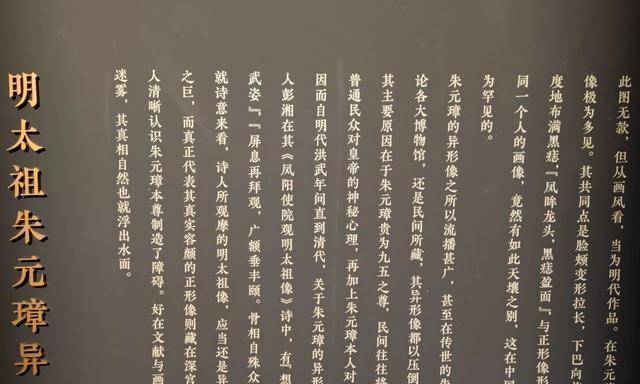 此图无款，但从画风看，当为明代作品。在朱元
像极为多见。其共同点是脸颊变形拉长，下巴向
度地布满黑痣，『凤眸龙头，黑痣盈面』，与正形像
同一个人的画像，竟然有如此天壤之别，这在中
为罕见的。
朱元璋的异形像之所以流播甚广，甚至在传世的朱
论各大博物馆，还是民间所藏，其异形像都以压倒
其主要原因在于朱元璋贵为九五之尊，民间往往将
普通民众对皇帝的神秘心理，再加上朱元璋本人对
因而自明代洪武年间直到清代，关于朱元璋的异形
人彭湘在其《凤阳使院观明太祖像》诗中，有『想
武姿』，『屏息再拜观，广额垂丰颐。骨相自殊众
就诗意来看，诗人所观摩的明太祖像，应当还是异
之巨，而真正代表其真实容颜的正形像则藏在深宫
人清晰认识朱元璋本尊制造了障碍。好在文献与画
迷雾，其真相自然也就浮出水面。
明太祖朱元璋异